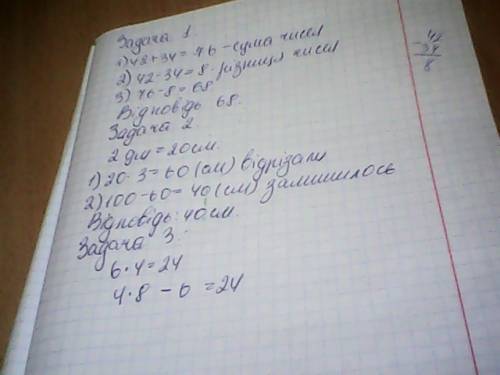 Задача 1.
1) 42+34=76 - сума чисел
2) 42-34=8 - різниця чисел
3) 76-8=68
Відповідь 68.
Задача 2.
2 дм = 20см.
1) 20·3=60 (см) відрізали
2) 100-60=40 (см) залишилось
Відповідь: 40см.
Задача 3.
6·4=24
4·8-6=24
42
-34
8